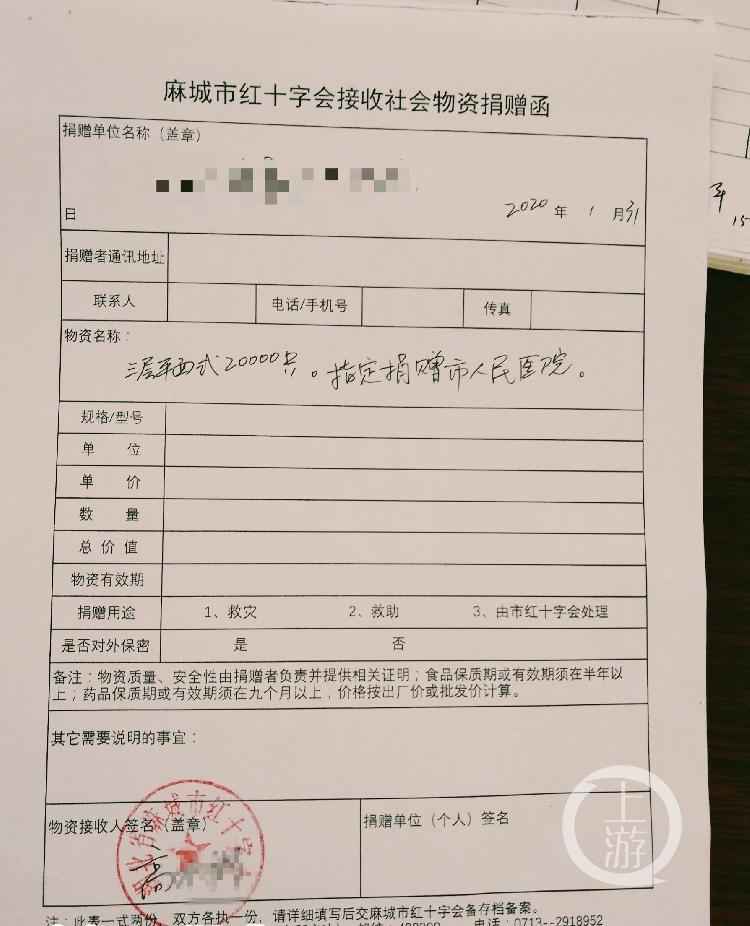 麻城市红十字会接收社会物资捐赠函
捐赠单位名称（盖章）
2020 年 1 月 31
日
捐赠者通讯地址
联系人 电话/手机号 传真
物资名称：
三层 西式20000只。指定捐赠市人民医院。
规格/型号
单 位
单 价
数 量
总 价 值
物资有效期
捐赠用途 1、救灾 2、救助 3、由市红十字会处理
是否对外保密 是 否
备注：物资质量、安全性由捐赠者负责并提供相关证明；食品保质期或有效期须在半年以
上；药品保质期或有效期须在九个月以上；价格按出厂价或批发价计算。
其它需要说明的事宜：
物资接收人签名（盖章） 捐赠单位（个人）签名
湖北省麻城市红十字
注：此表一式两份，双方各执一份，请详细填写后交麻城市红十字会备存档备案。
电话：0713--2918952
上游
年
15